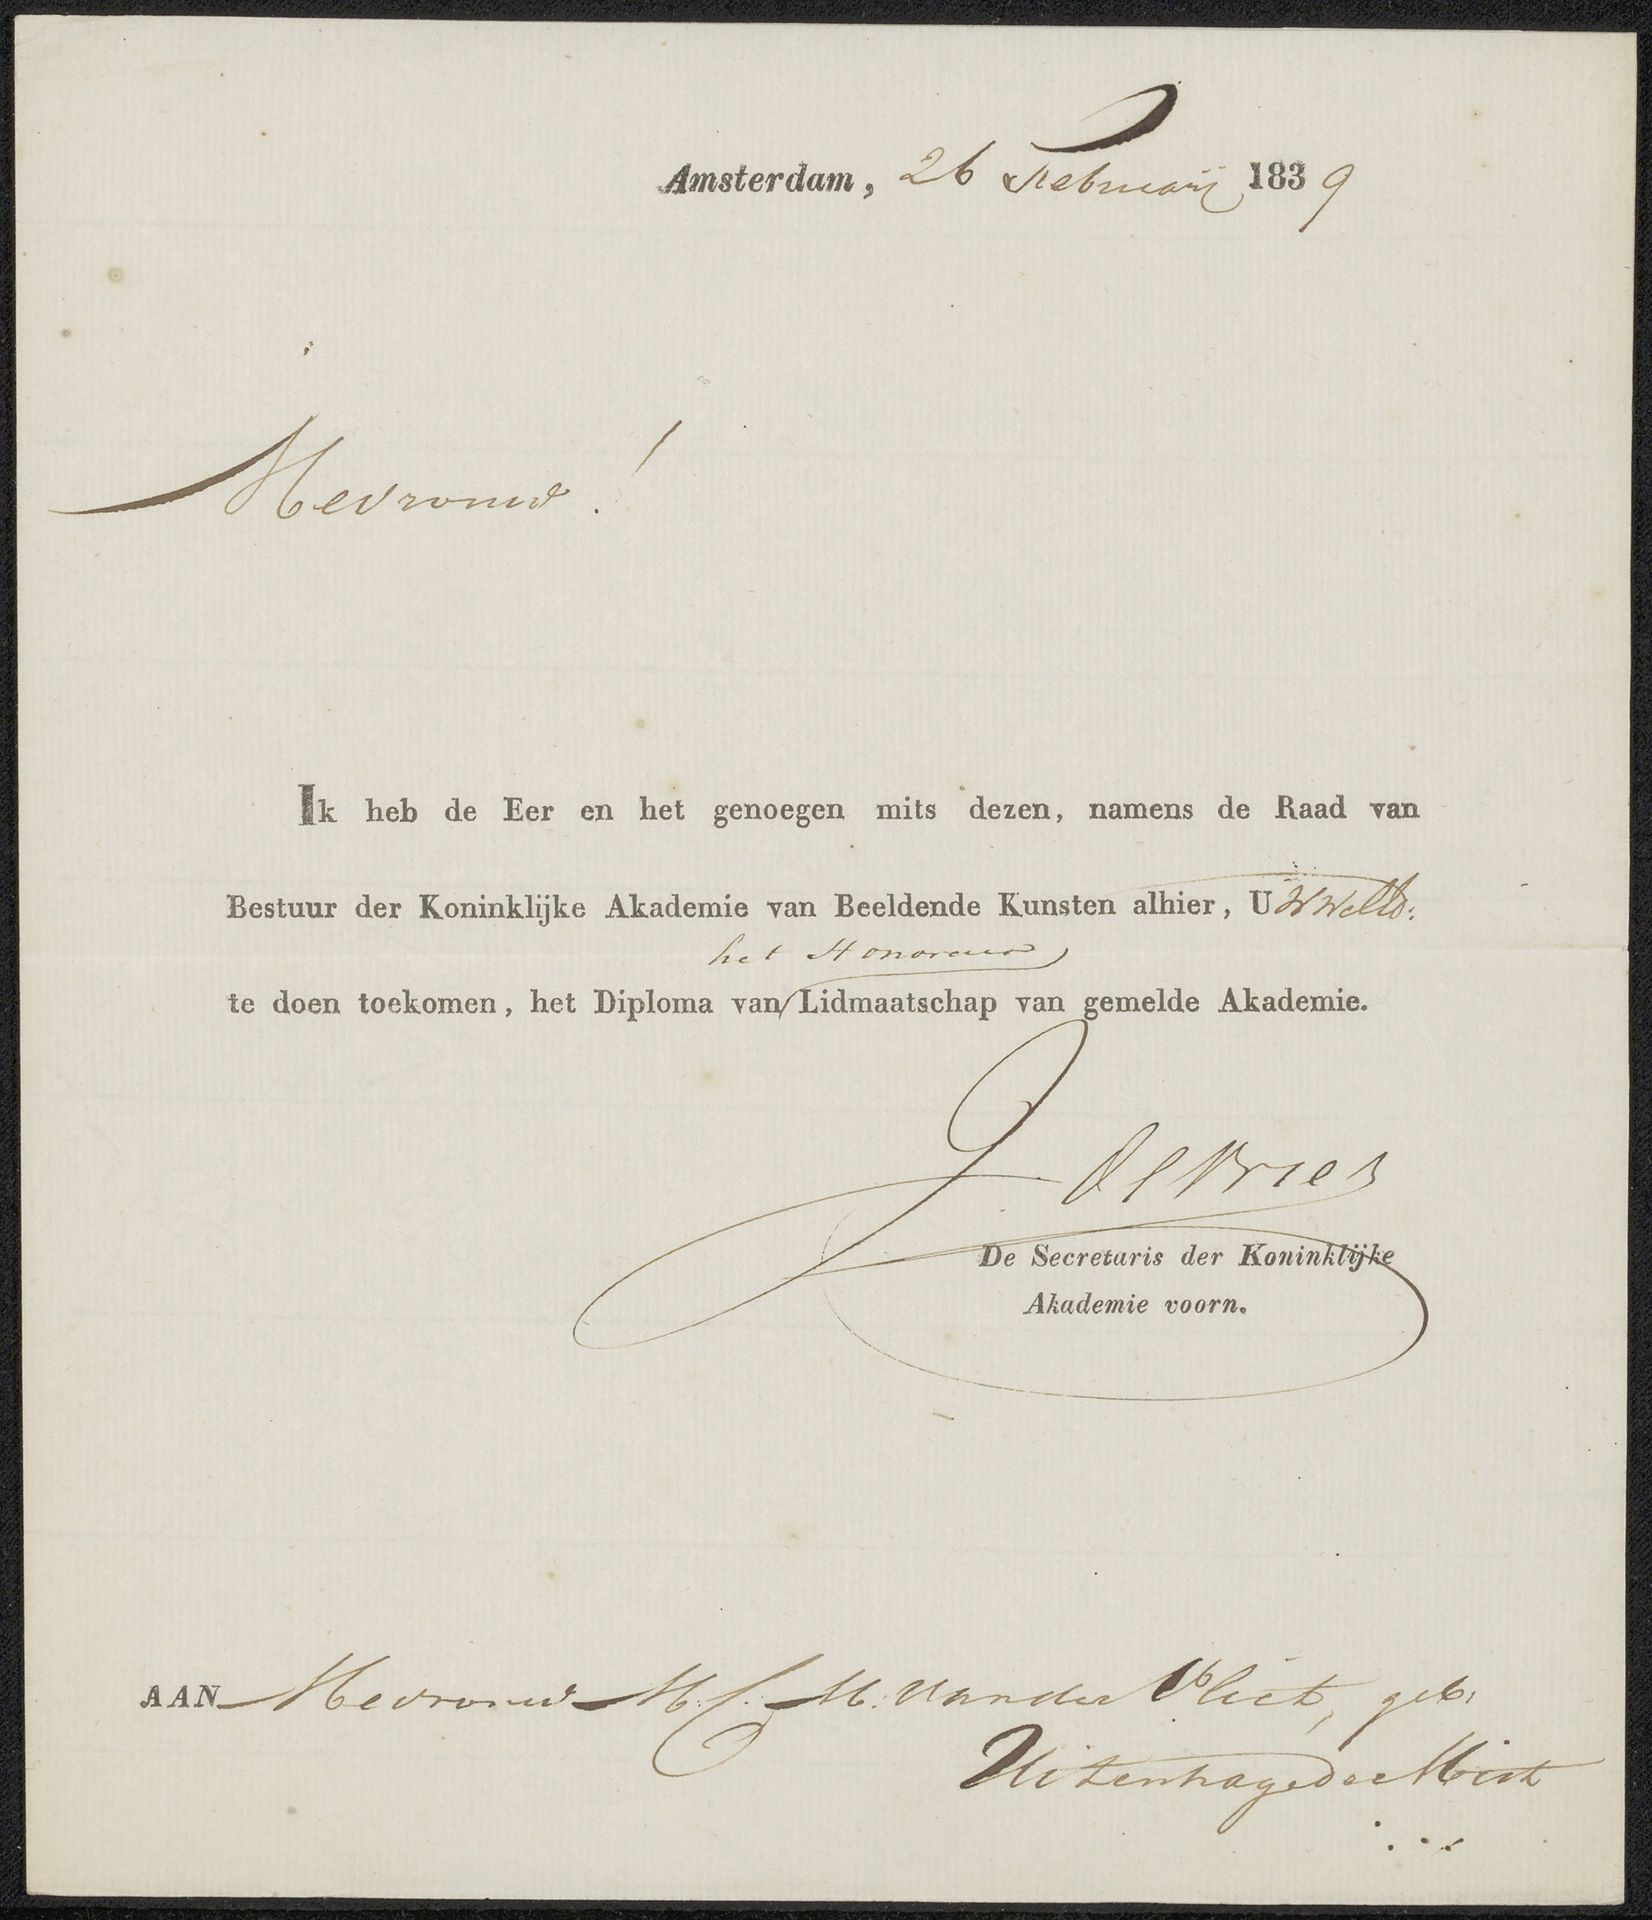 Amsterdam, 26 Februarij 1839
Mevrouw!
Ik heb de Eer en het genoegen mits dezen, namens de Raad van
Bestuur der Koninklijke Akademie van Beeldende Kunsten alhier, U
het Honorair
te doen toekomen, het Diploma van Lidmaatschap van gemelde Akademie.
J. de Vries
De Secretaris der Koninklijke
Akademie voorn.
AAN Mevrouw M. J. M. van der Vliet, geb.
Uitenhage de Mist